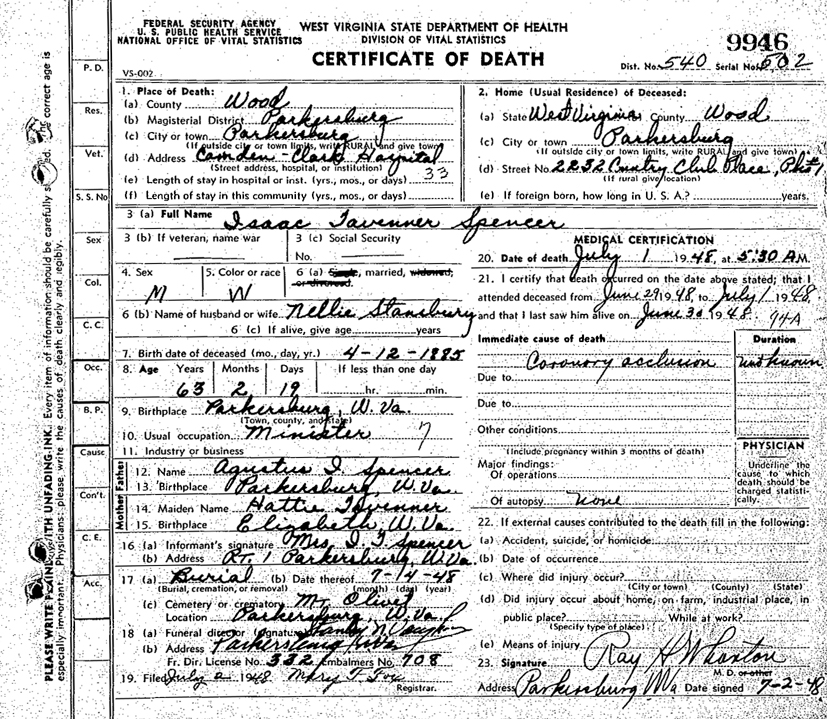 FEDERAL SECURITY AGENCY
U. S. PUBLIC HEALTH SERVICE
NATIONAL OFFICE OF VITAL STATISTICS
WEST VIRGINIA STATE DEPARTMENT OF HEALTH
DIVISION OF VITAL STATISTICS
CERTIFICATE OF DEATH
9946
Dist. No. 540 Serial No. 502
VS-002
PLEASE WRITE PLAINLY WITH UNFADING INK. Every item of information should be carefully The correct age is
especially important. Physicians: please, write the causes of death clearly and legibly.
P. D.
Res.
Vet.
S. S. No
Sex
Col.
C. C.
Occ.
B. P.
Cause
Con't.
C. E.
Acc.
1. Place of Death:
(a) County Wood
(b) Magisterial District Parkersburg
(c) City or town Parkersburg
(If outside city or town limits, write RURAL and give town)
(d) Address Camden-Clark Hospital
(Street address, hospital, or institution)
33
(e) Length of stay in hospital or inst. (yrs., mos., or days)
(f) Length of stay in this community (yrs., mos., or days)
2. Home (Usual Residence) of Deceased:
(a) State West Virginia County Wood
(c) City or town Parkersburg
(If outside city or town limits, write RURAL and give town)
(d) Street No. 2232 Cuntry Club Place,
(If rural give location)
(e) If foreign born, how long in U. S. A.? years.
3 (a) Full Name Isaac Tavenner Spencer
3 (b) If veteran, name war
3 (c) Social Security
No.
4. Sex M
5. Color or race W
6 (a) Single, married, widowed, or divorced.
6 (b) Name of husband or wife Nellie Stansbury
6 (c) If alive, give age years
7. Birth date of deceased (mo., day, yr.) 4-12-1885
8. Age Years Months Days If less than one day
63 2 19 hr. min.
9. Birthplace Parkersburg, W. Va.
(Town, county, and state)
10. Usual occupation Minister 7
11. Industry or business
Father
12. Name Agustus I. Spencer
13. Birthplace Parkersburg, W. Va.
Mother
14. Maiden Name Hattie Tavenner
15. Birthplace Elizabeth, W. Va.
16 (a) Informant's signature Mrs. I. T. Spencer
(b) Address RT. 1 Parkersburg, W. Va.
17 (a) Burial (b) Date thereof 7-14-48
(Burial, cremation, or removal) (month) (day) (year)
(c) Cemetery or crematory Mt. Olivet
Location Parkersburg, W. Va.
18 (a) Funeral director (signature)
(b) Address Parkersburg W Va
Fr. Dir. License No. 332 Embalmers No. 708
19. Filed July 2 1948 Mary T. Fox
Registrar.
MEDICAL CERTIFICATION
20. Date of death July 1 1948, at 5:30 A.M.
21. I certify that death occurred on the date above stated; that I
attended deceased from June 29 1948, to July 1 1948
and that I last saw him alive on June 30 1948.
94A
Immediate cause of death Duration
Coronary occlusion unknown
Due to
Due to
Other conditions
(Include pregnancy within 3 months of death)
Major findings:
Of operations
Of autopsy none
PHYSICIAN
Underline the
cause to which
death should be
charged statisti-
cally.
22. If external causes contributed to the death fill in the following:
(a) Accident, suicide, or homicide
(b) Date of occurrence
(c) Where did injury occur?
(City or town) (County) (State)
(d) Did injury occur about home, on farm, industrial place, in
public place? While at work?
(Specify type of place)
(e) Means of injury
23. Signature Ray H Wharton
M. D. or other
Address Parkersburg W Va Date signed 7-2-48